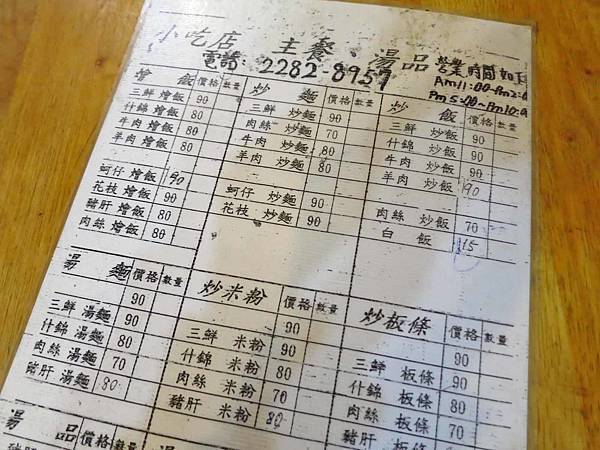 小吃店 主餐、湯品
電話: 2282-8957
營業時間如下
Am11:00~Pm2:
Pm5:00~Pm10:
燴飯 價格 數量
三鮮 燴飯 90
什錦 燴飯 80
牛肉 燴飯 80
羊肉 燴飯 80
蚵仔 燴飯 90
花枝 燴飯 90
豬肝 燴飯 80
肉絲 燴飯 80
炒麵 價格 數量
三鮮 炒麵 90
肉絲 炒麵 70
牛肉 炒麵 80
羊肉 炒麵 80
蚵仔 炒麵 90
花枝 炒麵 90
炒飯 價格 數量
三鮮 炒飯 90
什錦 炒飯 90
牛肉 炒飯 90
羊肉 炒飯 90
肉絲 炒飯 70
白飯 15
湯麵 價格 數量
90
三鮮 湯麵 90
什錦 湯麵 80
肉絲 湯麵 70
豬肝 湯麵 80
炒米粉 價格 數量
90
三鮮 米粉 90
什錦 米粉 80
肉絲 米粉 70
豬肝 米粉 80
炒板條 價格 數量
90
三鮮 板條 90
什錦 板條 80
肉絲 板條 70
豬肝 板條 80
湯品 價格 數量